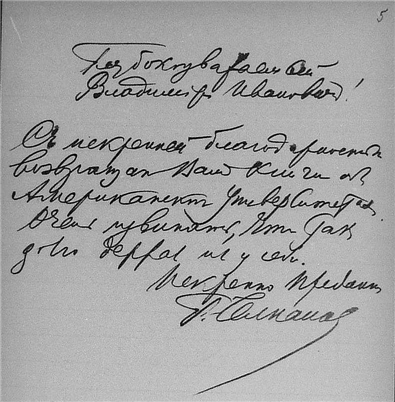 5
Глубокоуважаемый
Владимiръ Ивановичъ!
Съ искренней благодарностью
возвращаю Вамъ книги объ
Американскихъ Университетахъ.
Очень извиняюсь, что такъ
долго держалъ ихъ у себя.
Искренно преданный
Г. Челпановъ